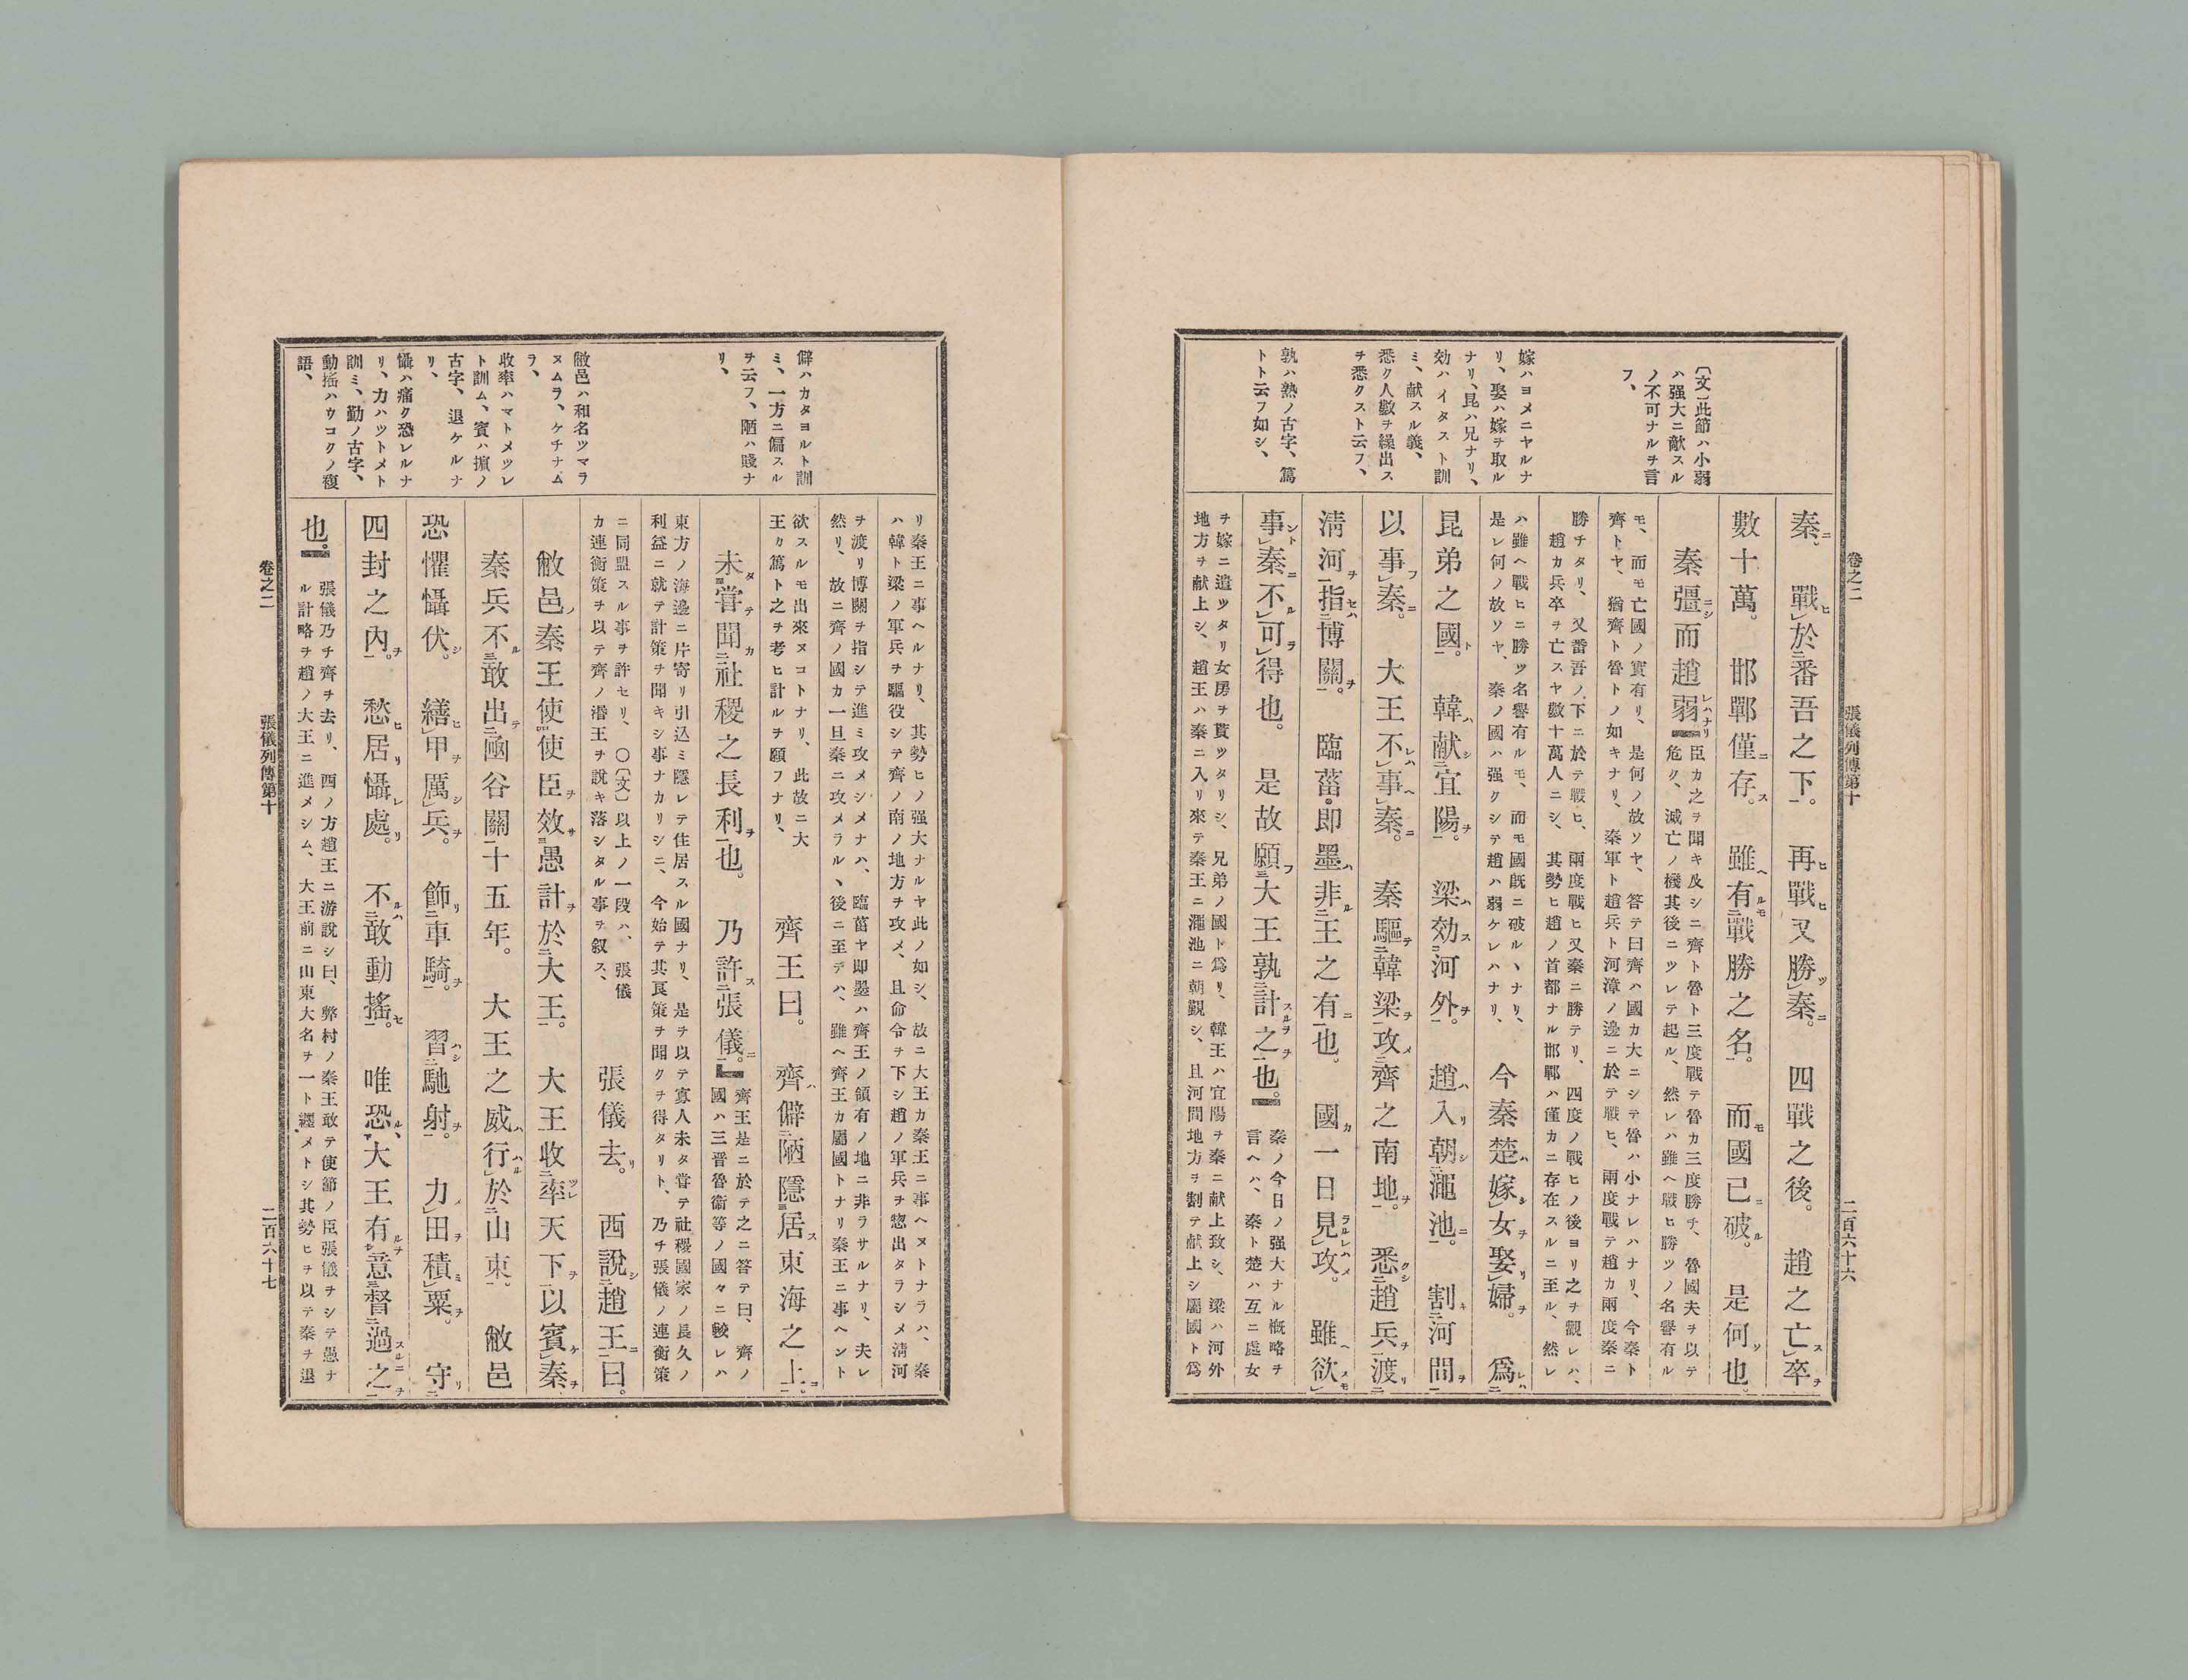 卷之二 張儀列傳第十 二百六十六
〔文〕此節ハ小弱
ハ强大ニ敵スル
ノ不可ナルヲ言
フ、
嫁ハヨメニヤルナ
リ、娶ハ嫁ヲ取ル
ナリ、昆ハ兄ナリ、
効ハイタスト訓
ミ、献スル義、
悉ク人數ヲ繰出ス
ヲ悉クスト云フ、
孰ハ熟ノ古字、篤
トト云フ如シ、
秦ニ。戰ヒ」於二番吾之下一。再ヒ戰ヒ又勝ツ」秦ニ。四戰之後。趙之亡ス」卒ヲ
數十萬。邯鄲僅ニ存ス。雖ヘ有ルモ二戰勝之名一。而モ國已ニ破ル。是何ソ也。
秦彊ニシ而趙弱レハナリ
臣カ之ヲ聞キ及シニ齊ト魯ト三度戰テ魯カ三度勝チ、魯國夫ヲ以テ
危ク、滅亡ノ機其後ニツレテ起ル、然レハ雖ヘ戰ヒ勝ツノ名譽有ル
モ、而モ亡國ノ實有リ、是何ノ故ソヤ、答テ曰齊ハ國カ大ニシテ魯ハ小ナレハナリ、今秦ト
齊トヤ、猶齊ト魯トノ如キナリ、秦軍ト趙兵ト河漳ノ邊ニ於テ戰ヒ、兩度戰テ趙カ兩度秦ニ
勝チタリ、又番吾ノ下ニ於テ戰ヒ、兩度戰ヒ又秦ニ勝テリ、四度ノ戰ヒノ後ヨリ之ヲ觀レハ、
趙カ兵卒ヲ亡スヤ數十萬人ニシ、其勢ヒ趙ノ首都ナル邯鄲ハ僅カニ存在スルニ至ル、然レ
ハ雖ヘ戰ヒニ勝ツ名譽有ルモ、而モ國既ニ破ルヽナリ、
是レ何ノ故ソヤ、秦ノ國ハ强クシテ趙ハ弱ケレハナリ、
今秦楚ハ嫁シ」女ヲ娶リ」婦ヲ。爲レハ二
昆弟之國ト一。韓ハ献シ二宜陽ヲ一。梁ハ効ス二河外ヲ一。趙ハ入リ朝シ二澠池ニ一。割キ二河間ヲ一
以事フ」秦ニ。大王不レハ」事ヘ」秦ニ。秦驅テ二韓梁ヲ一攻メ二齊之南地ヲ一。悉クシ二趙兵ヲ一渡リ二
淸河ヲ一指セハ二博關ヲ一。臨菑・即墨ハ非ル二王之有ニ一也。國カ一日見ラルレハ」攻メ。雖ヘ欲スモ」
事ント」秦ニ不ル」可ラ」得也。是故願フ三大王孰二計スルヲ之ヲ一也。
秦ノ今日ノ强大ナル慨略ヲ
言ヘハ、秦ト楚ハ互ニ處女
ヲ嫁ニ遣ツタリ女房ヲ貰ツタリシ、兄弟ノ國ト爲リ、韓王ハ宜陽ヲ秦ニ献上致シ、梁ハ河外
地方ヲ献上シ、趙王ハ秦ニ入リ來テ秦王ニ澠池ニ朝覲シ、且河間地方ヲ割テ献上シ屬國ト爲
僻ハカタヨルト訓
ミ、一方ニ偏スル
ヲ云フ、陋ハ賤ナ
リ、
敝邑ハ和名ツマラ
ヌムラ、ケチナム
ラ、
收率ハマトメツレ
ト訓ム、賓ハ擯ノ
古字、退ケルナ
リ、
懾ハ痛ク恐レルナ
リ、力ハツトメト
訓ミ、勤ノ古字、
動搖ハウコクノ複
語、
リ秦王ニ事ヘルナリ、其勢ヒノ强大ナルヤ此ノ如シ、故ニ大王カ秦王ニ事ヘヌトナラハ、秦
ハ韓ト梁ノ軍兵ヲ驅役シテ齊ノ南ノ地方ヲ攻メ、且命令ヲ下シ趙ノ軍兵ヲ惣出タラシメ淸河
ヲ渡リ博關ヲ指シテ進ミ攻メシメナハ、臨菑ヤ即墨ハ齊王ノ領有ノ地ニ非ラサルナリ、夫レ
然リ、故ニ齊ノ國カ一旦秦ニ攻メラルヽ後ニ至テハ、雖ヘ齊王カ屬國トナリ秦王ニ事ヘント
欲スルモ出來ヌコトナリ、此故ニ大
王カ篤ト之ヲ考ヒ計ルヲ願フナリ、
齊王曰。齊ハ僻二陋隱三居ス東海之上ニ一。
未タ三嘗テ聞カ二社稷之長利ヲ一也。乃許ス二張儀ニ一。
齊王是ニ於テ之ニ答テ曰、齊ノ
國ハ三晋魯衞等ノ國々ニ較レハ
東方ノ海邊ニ片寄リ引込ミ隱レテ住居スル國ナリ、是ヲ以テ寡人未タ嘗テ社稷國家ノ長久ノ
利益ニ就テ計策ヲ聞キシ事ナカリシニ、今始テ其良策ヲ聞クヲ得タリト、乃チ張儀ノ連衡策
ニ同盟スル事ヲ許セリ、〇〔文〕以上ノ一段ハ、張儀
カ連衡策ヲ以テ齊ノ湣王ヲ說キ落シタル事ヲ叙ス、
張儀去リ。西說シ二趙王ニ一曰。
敝邑ノ秦王使四使臣ヲ效サ三愚計ヲ於二大王一。大王收二率ツレ天下ヲ一以賓ケ」秦ヲ。
秦兵不ル三敢出テ二凾谷關一十五年。大王之威ハ行ハル」於二山東一。敝邑
恐懼懾伏シ。繕ヒ」甲ヲ厲シ」兵ヲ。飾リ二車騎ヲ一。習ハシ二馳射ヲ一。力メ」田ヲ積ミ」粟ヲ。守リ二
四封之內ヲ一。愁ヒ居リ懾レ處リ。不ルハ二敢動搖セ一。唯恐ルヽ大王有ルヲ意三督二過スルニ之ヲ一
也。
張儀乃チ齊ヲ去リ、西ノ方趙王ニ游說シ曰、弊村ノ秦王敢テ使節ノ臣張儀ヲシテ愚ナ
ル計略ヲ趙ノ大王ニ進メシム、大王前ニ山東大名ヲ一ト纏メトシ其勢ヒヲ以テ秦ヲ退
卷之二 張儀列傳第十 二百六十七